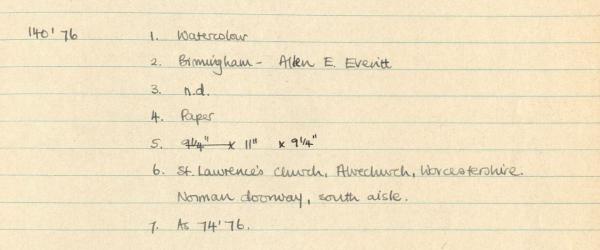 140'76 1. Watercolour
2. Birmingham - Allen E. Everitt
3. n.d.
4. Paper
5. 9¼" x 11" x 9¼"
6. St. Lawrence's Church, Alvechurch, Worcestershire.
Norman doorway, south aisle.
7. As 74'76.